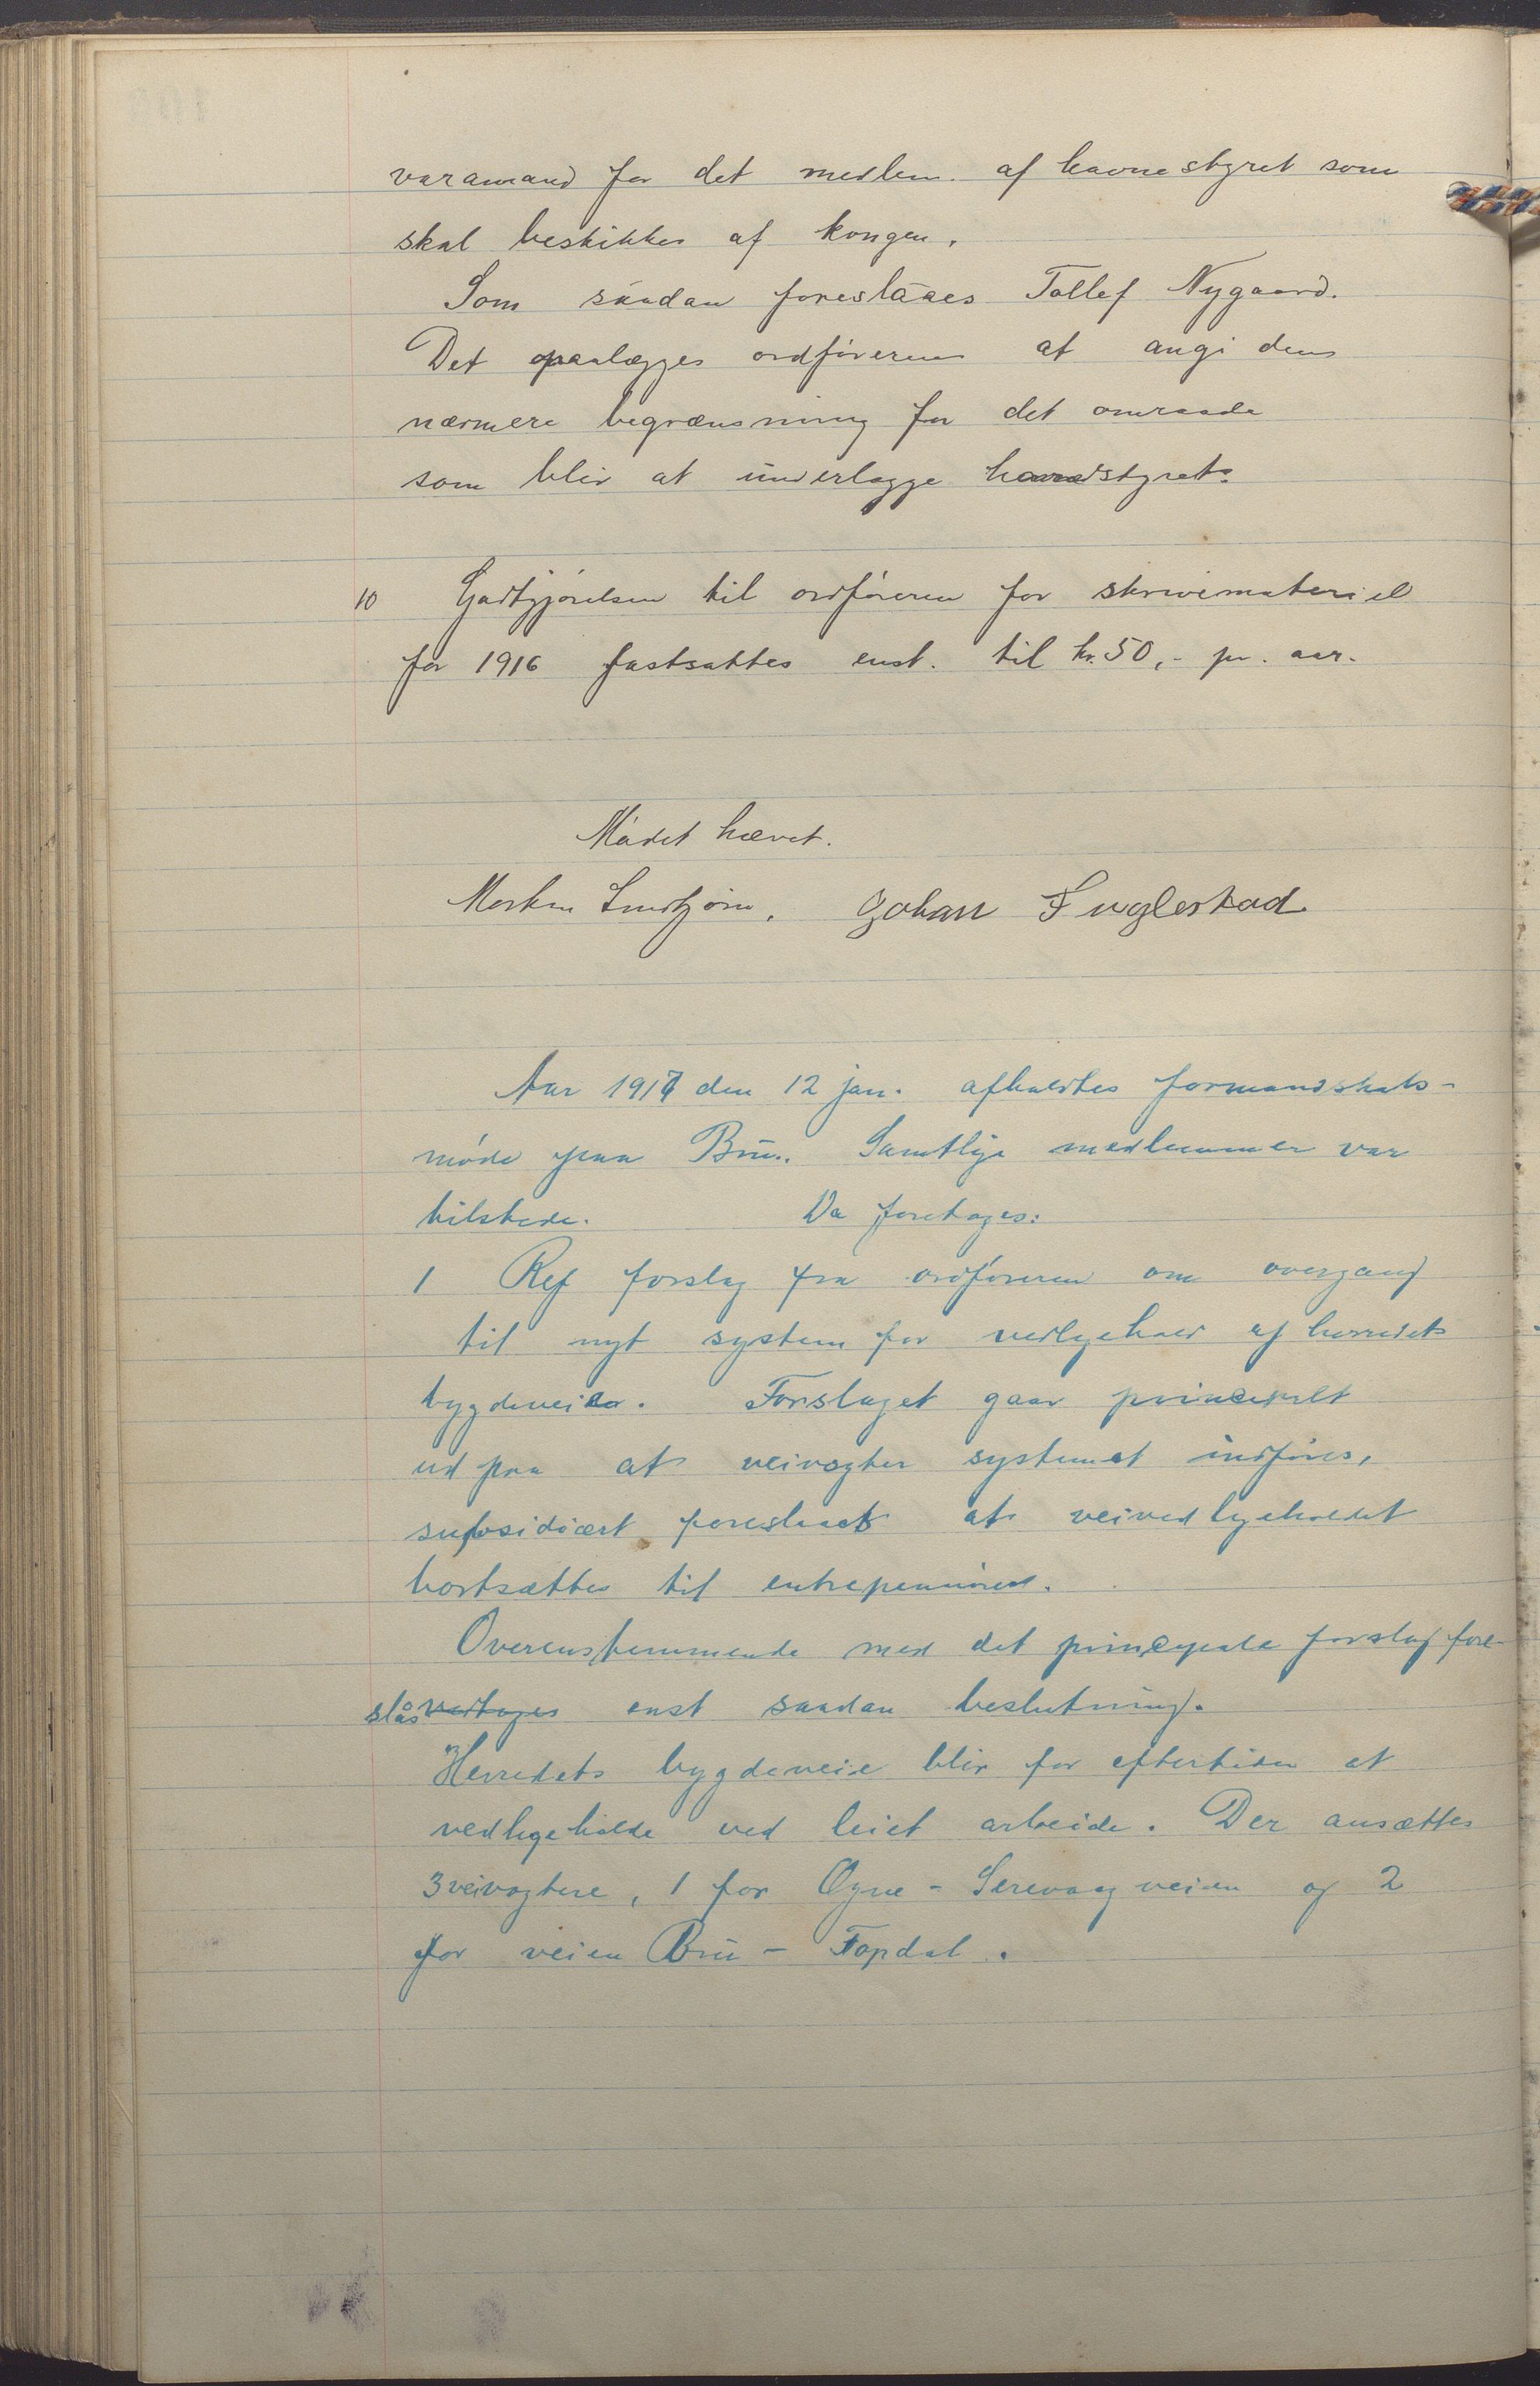 varamand for det medlem af havnestyret som
skal beskikkes af kongen.
Som saadan foreslaaes Tollef Nygaard.
Det paalægges ordføreren at angi den
nærmere begrænsning for det omraade
som blir at underlægge havnestyret.
10 Godtgjørelsen til ordføreren for skrivemateriel
for 1916 fastsattes enst. til kr. 50,- pr. aar.
Mødet hævet.
Morten Lindtjørn. Johan Fuglestad
Aar 1917 den 12 jan. afholdtes formandskabs-
møde paa Bru. Samtlige medlemmer var
tilstede. Da foretages:
1 Ref forslag fra ordføreren om overgang
til nyt system for vedligehold af herredets
bygdeveier. Forslaget gaar principelt
ud paa at veivogter systemet indføres,
subsidiært foreslaaes at veivedligeholdet
bortsættes til entrepenører.
Overensstemmende med det principale forslag fore-
slås vedtages enst saadan beslutning.
Herredets bygdeveie blir for eftertiden at
vedligeholde ved leiet arbeide. Der ansættes
3 veivogtere, 1 for Ogne - Sirevaag veien og 2
for veien Bru - Fopdal.